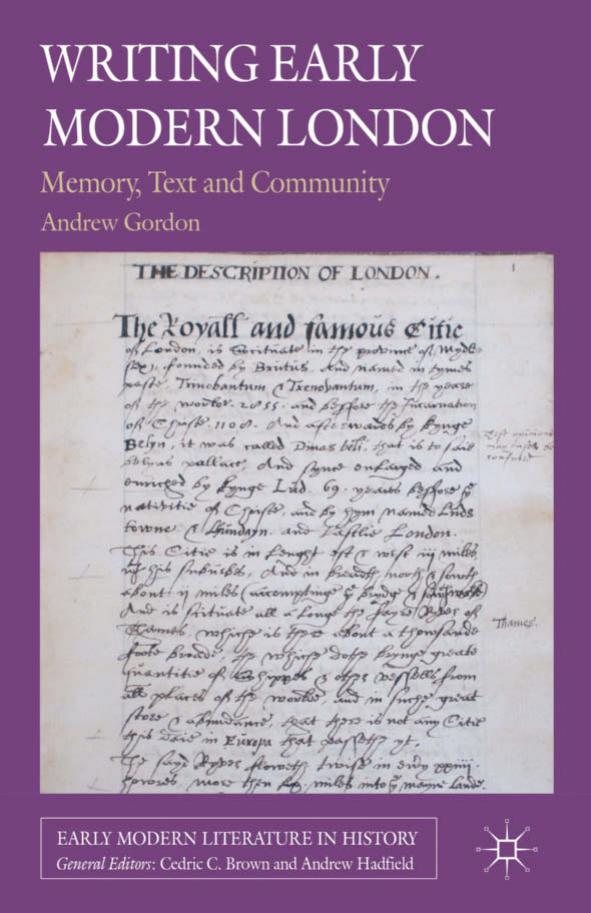 WRITING EARLY
MODERN LONDON
Memory, Text and Community
Andrew Gordon
THE DESCRIPTION OF LONDON.
1
The Royall and famous Citie
of London, is scituate in the province of Mydle
sex, founded by Brutus. And named in tymes
paste, Trinobantum & Trenovantum, in the yeare
of the worlde. 2855. and beffore the Incarnation
of Christe. 1108. And afterwards by Kynge
Belyn, it was called Dinas beli, that is to saie
belyns pallace, And syne enlarged and
enriched by Kynge Lud. 69. years beffore ye
nativitie of Christe, and by hym named Luds
towne & Lundayn. and Lastlie London.
This Citie is in Lenght est & west iij miles
wt his suburbes, And in breadth north & south
about ij miles (accomptinge ye bridg & southwark)
And is scituate all a longe the fayre Ryver of
Thames. whiche is there about a thousande
Thames.
foote broade, the whiche dothe bringe greate
quantitie of Shippes & other vessells from
all places of the worlde, and in suche great
store & abundance, that there is not any Citie
this daie in Europa that passeth yt.
The sayd Ryver floweth twise in every xxiiij
howres, more then miles into ye mayne lande.
EARLY MODERN LITERATURE IN HISTORY
General Editors: Cedric C. Brown and Andrew Hadfield